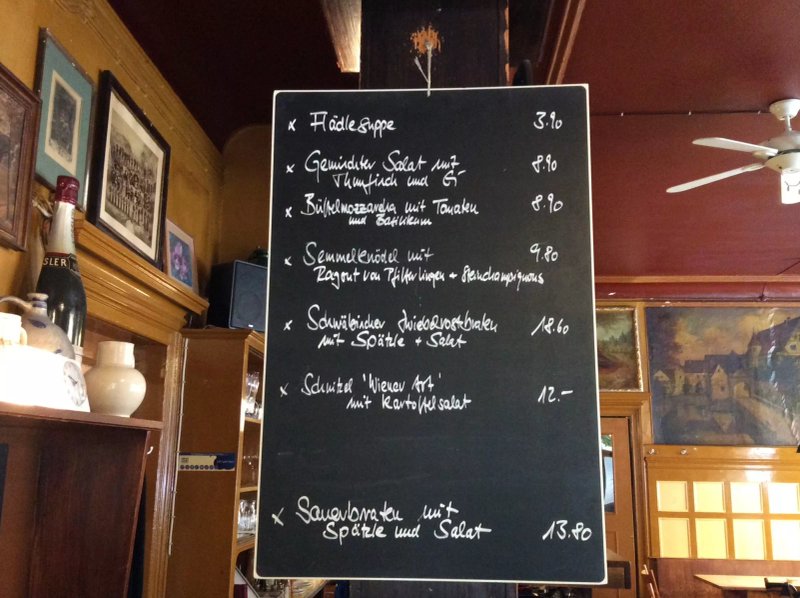 x Flädlesuppe 3.90
x Gemischter Salat mit 8.90
Thunfisch und Ei
x Büffelmozzarella mit Tomaten 8.90
und Basilikum
x Semmelknödel mit 9.80
Ragout von Pfifferlingen + Steinchampignons
x Schwäbischer Zwiebelrostbraten 18.60
mit Spätzle + Salat
x Schnitzel 'Wiener Art' 12.-
mit Kartoffelsalat
x Sauerbraten mit
Spätzle und Salat 13.80
SLER